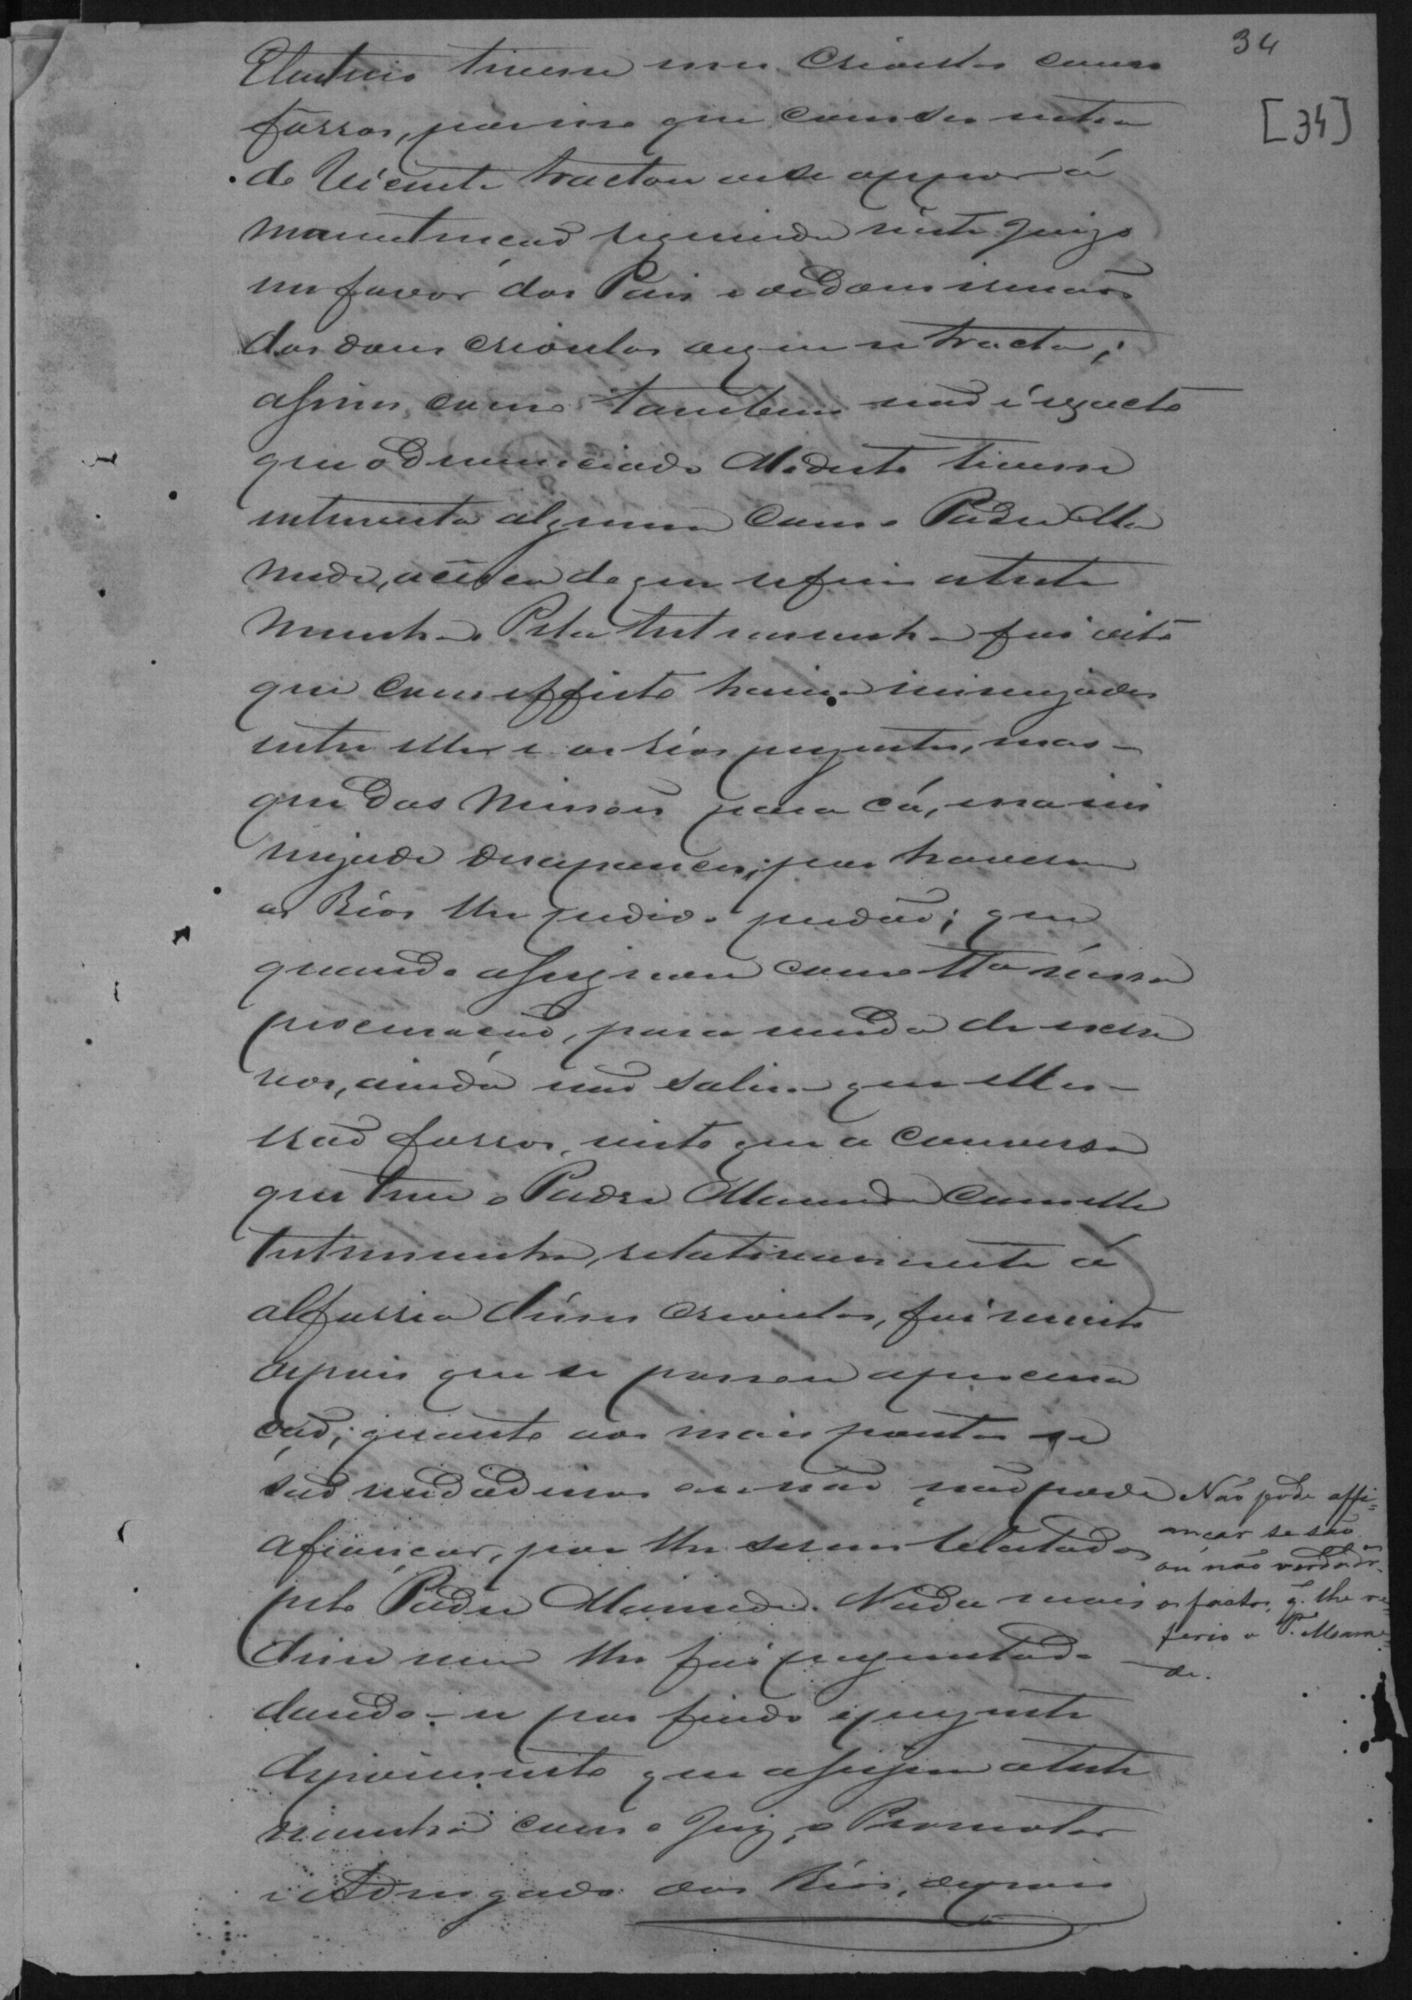 34
[34]
Eleuterio tivesse seus crioulos como
forros, por isso que com seu mano
de Vicente tractou de se oppor á
manutencaõ requerida neste Juizo
em favor dos Pais e de dous irmaõs
dos dous crioulos de que se tracta;
assim como tambem naõ é exacto
que o denunciado Modesto tivesse
entrevista alguma com o Padre Ma
mede, acerca de que refere a teste
munha. Pela testemunha foi dito
que com effeito havia inimizades
entre elle e os Réos presentes, mas
que das Missoẽs para cá, essa ini
mizade desapareceo, por haverem
os Réos lhe pedido perdaõ; que
quando assignou como testa nessa
procuracaõ, para venda de escra
vos, ainda naõ sabia que elles
eraõ forros, visto que a conversa
que teve o Padre Mamede com elle
testemunha, relativamente á
alforria desses crioulos, foi muito
depois que se passou a procura
caõ; quanto aos mais pontos se
saõ verdadeiros ou naõ, naõ pode
afiancar, por lhe serem relatados
pelo Padre Mamede. Nada mais
disse nem lhe foi perguntado
dando-se por findo o presente
depoimento que assigna a teste
munha com o Juiz, o Promotor
e Advogado dos Réos, depois
Não pode affi=
ancar se são
ou não verdadr.os
os factos, q. lhe re=
ferio o P.e Mame=
de.